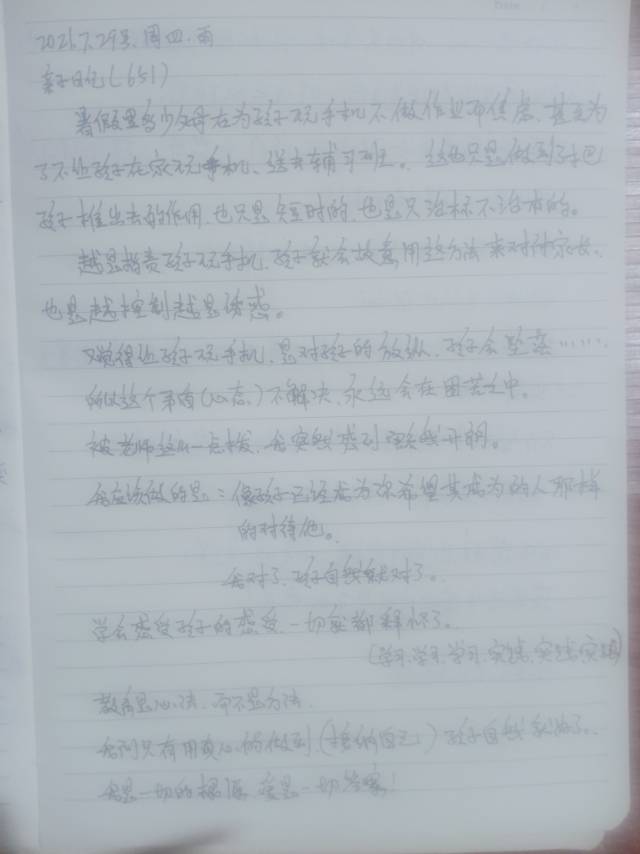 2021.7.29号.周四.雨
亲子日记(651)
暑假里多少父母在为孩子玩手机不做作业而焦虑.甚至为
了不让孩子在家玩手机、送去辅习班。这也只是做到了把
孩子推出去的作用,也只是短时的,也是只治标不治本的。
越是指责孩子玩手机,孩子就会故意用这方法来对付家长.
也是越控制越是诱惑。
又觉得让孩子玩手机,是对孩子的放纵,孩子会坠落……
所以这个矛盾(心态)不解决,永远会在困苦之中。
被老师这么一点拨,我突然感到豁然开朗。
我应该做的是:像孩子已经成为你希望其成为的人那样
的对待他。
我对了,孩子自然就对了。
学会感受孩子的感受,一切都释怀了。
(学习.学习.学习.实践.实践.实践)
教育是心法,而不是方法.
我们只有用真心的做到(接纳自己)孩子自然就好了。
我是一切的根源,爱是一切答案!